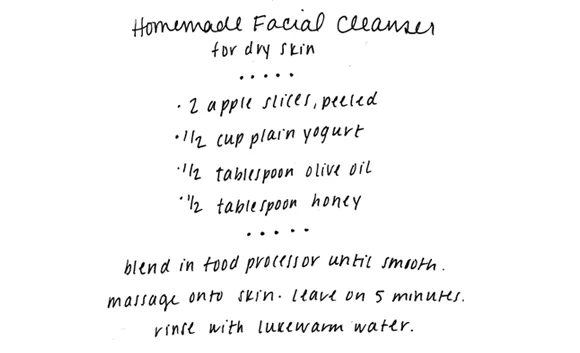 Homemade Facial Cleanser
for dry skin
.....
· 2 apple slices, peeled
· 1/2 cup plain yogurt
· 1/2 tablespoon olive oil
· 1/2 tablespoon honey
.....
blend in food processor until smooth.
massage onto skin. leave on 5 minutes.
rinse with lukewarm water.